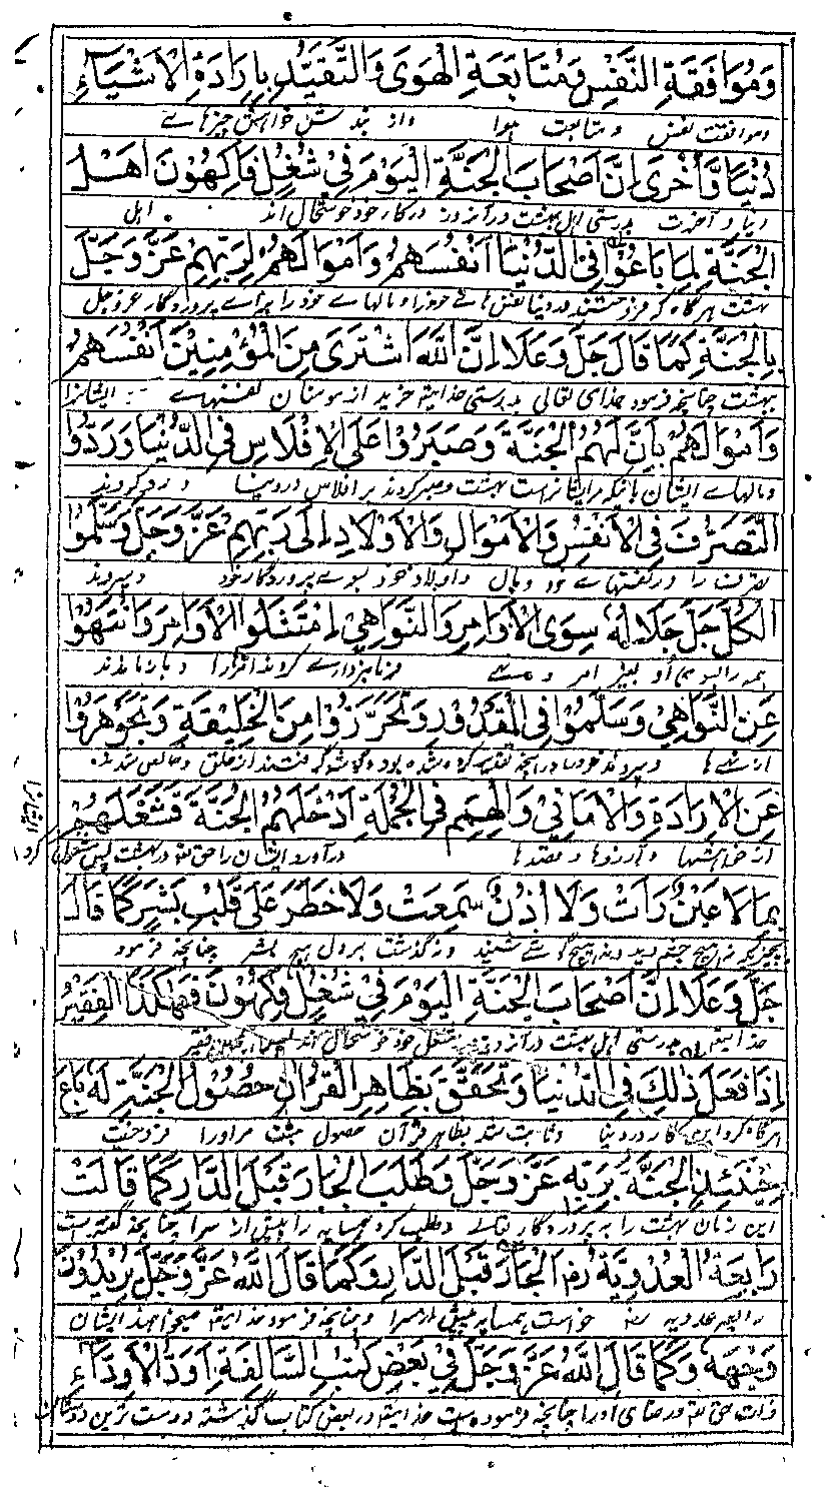 وَمُوَافَقَةِ النَّفْسِ وَمُتَابَعَةِ الْهَوَى وَالتَّقَيُّدِ بِاِرَادَةِ الْاَشْيَاءِ
وموافقت نفس و متابعت هوا واز بند شدن خواهش چیزهاے
دُنْيَا وَّاُخْرَى اِنَّ اَصْحَابَ الْجَنَّةِ الْيَوْمَ فِيْ شُغُلٍ فَاكِهُوْنَ اَهْلُ
دنیا و آخرت بدرستی اهل بهشت درآنروز درکار خود خوشحال اند اهل
الْجَنَّةِ لِمَا بَاعُوْا فِي الدُّنْيَا اَنْفُسَهُمْ وَاَمْوَالَهُمْ لِرَبِّهِمْ عَزَّ وَجَلَّ
بهشت هرگاه که فروختند در دنیا نفس هاے خود را و مالهاے خود را براے پروردگار عزوجل
بِالْجَنَّةِ كَمَا قَالَ جَلَّ وَعَلَا اِنَّ اللّٰهَ اشْتَرٰى مِنَ الْمُؤْمِنِيْنَ اَنْفُسَهُمْ
بهشت چنانچه فرمود خدای تعالی بدرستی خدایتعالی خرید از مومنان نفسهاے ایشانرا
وَاَمْوَالَهُمْ بِاَنَّ لَهُمُ الْجَنَّةَ وَصَبَرُوْا عَلَى الْاِفْلَاسِ فِي الدُّنْيَا وَرَدُّوا
ومالهاے ایشان بانیکه مر ایشانراست بهشت وصبر کردند بر افلاس در دنیا و رد کردند
التَّصَرُّفَ فِي الْاَنْفُسِ وَالْاَمْوَالِ وَالْاَوْلَادِ اِلٰى رَبِّهِمْ عَزَّ وَجَلَّ وَسَلَّمُوا
تصرف را در نفسهاے خود ومال واولاد خود بسوے پروردگار خود وسپردند
الْكُلَّ جَلَّ جَلَالُهُ سِوَى الْاَوَامِرِ وَالنَّوَاهِيْ اِمْتَثَلُوا الْاَوَامِرَ وَانْتَهَوْا
همه را بسوی او بغیر امر و نهے فرمانبردارے کردند امر را و باز ماندند
عَنِ النَّوَاهِيْ وَسَلَّمُوْا فِي الْمَقْدُوْرِ وَتَحَرَّزُوْا مِنَ الْخَلِيْقَةِ وَتَجَوْهَرُوْا
از نهے ها وسپردند خود را در آنچه تقدیر کرده شده بود و گوشه گرفتند از خلق وخالص شدند
عَنِ الْاِرَادَةِ وَالْاَمَانِيْ وَالْهِمَمِ فِي الْجُمْلَةِ اَدْخَلَهُمُ الْجَنَّةَ فَشَغَلَهُمْ
از خواهشها وآرزوها وقصدها درآورد ایشان را حق تعالی در بهشت پس مشغول کرد
ایشانرا
بِمَا لَا عَيْنٌ رَاَتْ وَلَا اُذُنٌ سَمِعَتْ وَلَا خَطَرَ عَلٰى قَلْبِ بَشَرٍ كَمَا قَالَ
بچیزیکه نه هیچ چشم دید ونه هیچ گوشے شنید ونه گذشت بر دل هیچ بشر چنانچه فرمود
جَلَّ وَعَلَا اِنَّ اَصْحَابَ الْجَنَّةِ الْيَوْمَ فِيْ شُغُلٍ فٰكِهُوْنَ فَهٰكَذَا الْفَقِيْرُ
خدایتعالی بدرستی اهل بهشت درآنروز در شغل خود خوشحال اند فقیر
اِذَا فَعَلَ ذٰلِكَ فِي الدُّنْيَا وَتَحَقَّقَ بِظَاهِرِ الْقُرْاٰنِ حُصُوْلُ الْجَنَّةِ لَهُ بَاعَ
هرگاه کرد این کار در دنیا وثابت شد بظاهر قرآن حصول بهشت مر اورا فروخت
حِيْنَئِذٍ الْجَنَّةَ بِرَبِّهِ عَزَّ وَجَلَّ وَطَلَبَ الْجَارَ قَبْلَ الدَّارِ كَمَا قَالَتْ
این زمان بهشت را به پروردگار تعالے وطلب کرد همسایه را پیش از سرا چنانچه گفته است
رَابِعَةُ الْعَدَوِيَّةُ رض الْجَارَ قَبْلَ الدَّارِ وَكَمَا قَالَ اللّٰهُ عَزَّ وَجَلَّ يُرِيْدُوْنَ
رابعه عدویه خواست همسایه پیش از سرا وچنانچه فرمود خدایتعالی میخواهند ایشان
وَجْهَهُ وَكَمَا قَالَ اللّٰهُ عَزَّ وَجَلَّ فِيْ بَعْضِ كُتُبِ السَّالِفَةِ اَوَدُّ الْاَوِدَّاءِ
ذات حق تعالی ورضای اورا چنانچه فرموده است خدایتعالی در بعض کتاب گذشته دوست ترین دوستان